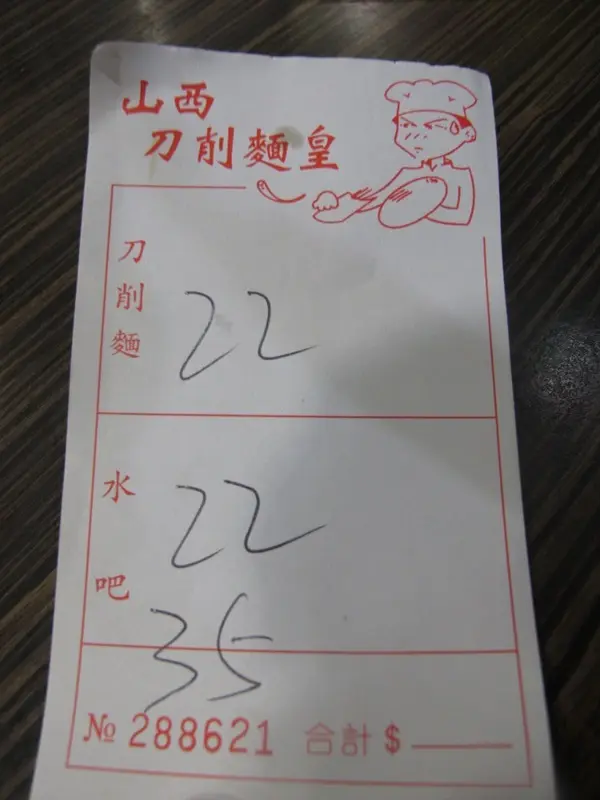 山西
刀削麵皇
刀削麵
22
水吧
22
35
№ 288621 合計 $